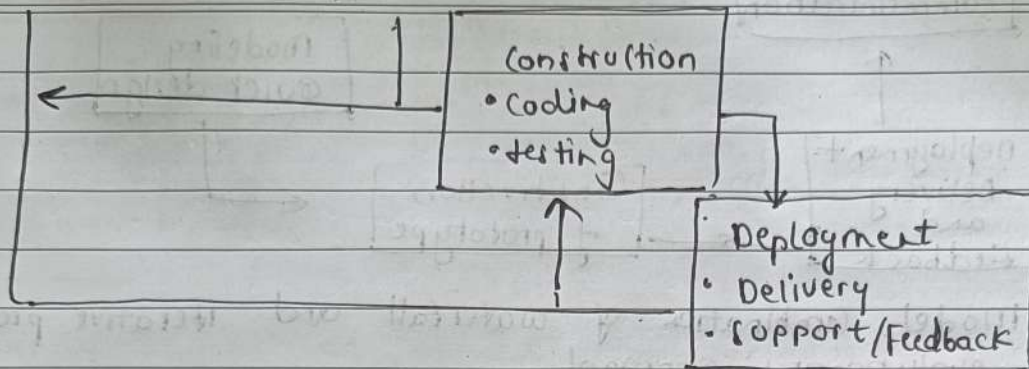 Construction
• Coding
• testing
Deployment
• Delivery
• Support/Feedback